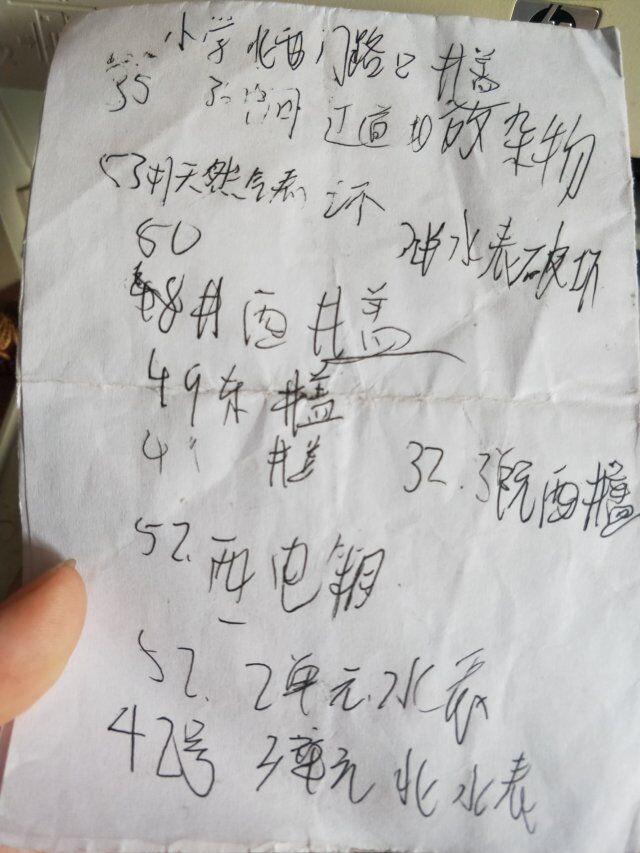 小学北西门路口井盖
35 过道内放杂物
53 天然气表坏
50 水表破坏
48 西井盖
49 东井盖
4 井盖
32. 3 西井盖
52. 西 电
52. 2单元水表
42号 3单元北水表